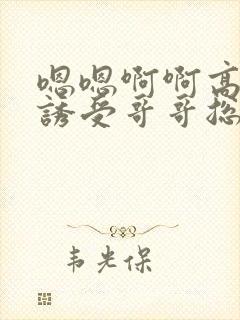 嗯嗯啊啊高
誘受哥哥㧾
韦光保